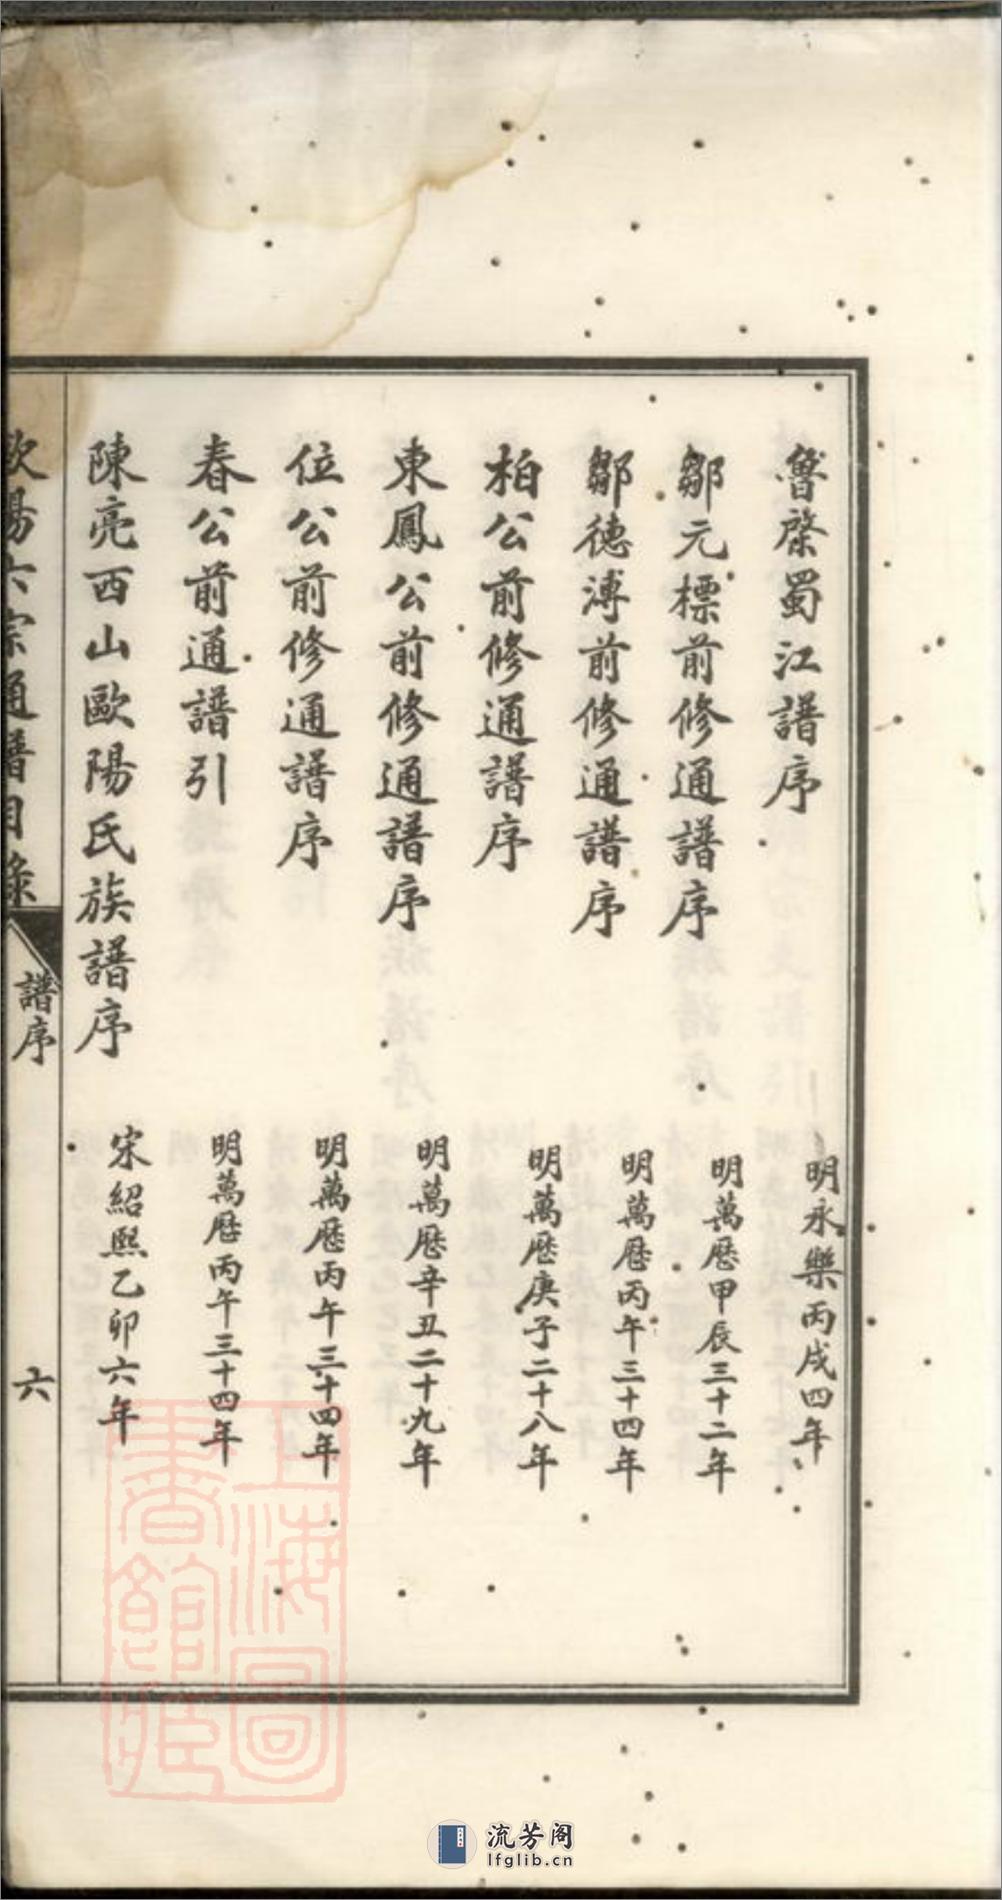 魯棨蜀江譜序
明永樂丙戌四年
鄒元標前修通譜序
明萬曆甲辰三十二年
鄒德溥前修通譜序
明萬曆丙午三十四年
柏公前修通譜序
明萬曆庚子二十八年
東鳳公前修通譜序
明萬曆辛丑二十九年
位公前修通譜序
明萬曆丙午三十四年
春公前通譜引
明萬曆丙午三十四年
陳亮西山歐陽氏族譜序
宋紹熙乙卯六年
歐陽六宗通譜目錄
譜序
六
上海圖書館藏
流芳阁
lfglib.cn